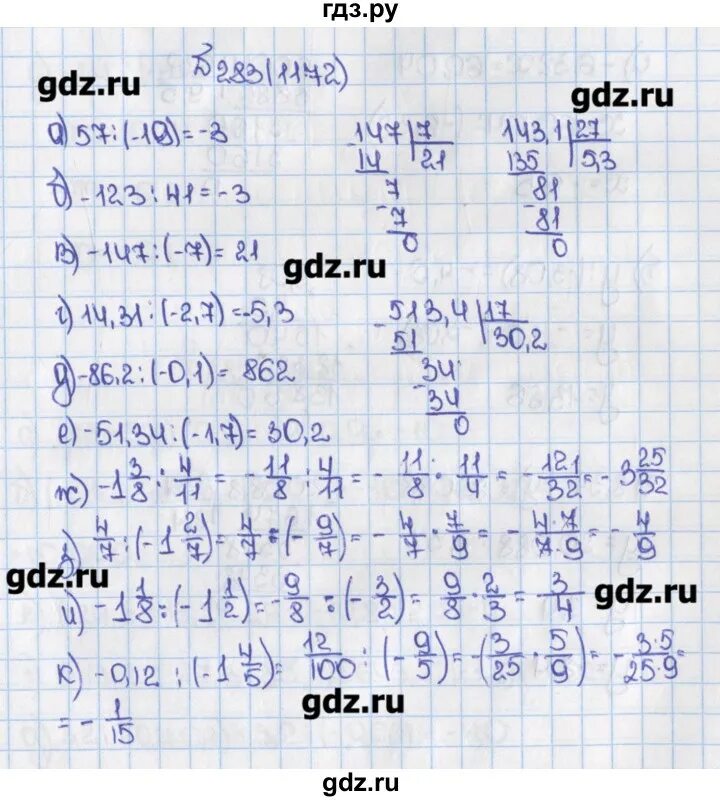 гдз.ру
283(1172)
gdz.ru
gdz.ru
а) 57:(-19)=-3
б) -123:41=-3
в) -147:(-7)=21
г) 14,31:(-2,7)=-5,3
д) -86,2:(-0,1)=862
е) -51,34:(-1,7)=30,2
147 7
14 21
7
-7
0
143,1 27
135 5,3
81
-81
0
gdz.ru
-513,4 17
51 30,2
34
-34
0
ж) -1 3/8 : 4/11 = -11/8 : 4/11 = -11/8 · 11/4 = -121/32 = -3 25/32
з) 4/7 : (-1 2/7) = 4/7 : (-9/7) = -4/7 · 7/9 = -4·7/7·9 = -4/9
gdz.ru
и) -1 1/8 : (-1 1/2) = -9/8 : (-3/2) = 9/8 · 2/3 = 3/4
gdz.ru
к) -0,12 : (-1 4/5) = 12/100 : (-9/5) = -(3/25 · 5/9) = -3·5/25·9 =
= -1/15
gdz.ru
gdz.ru